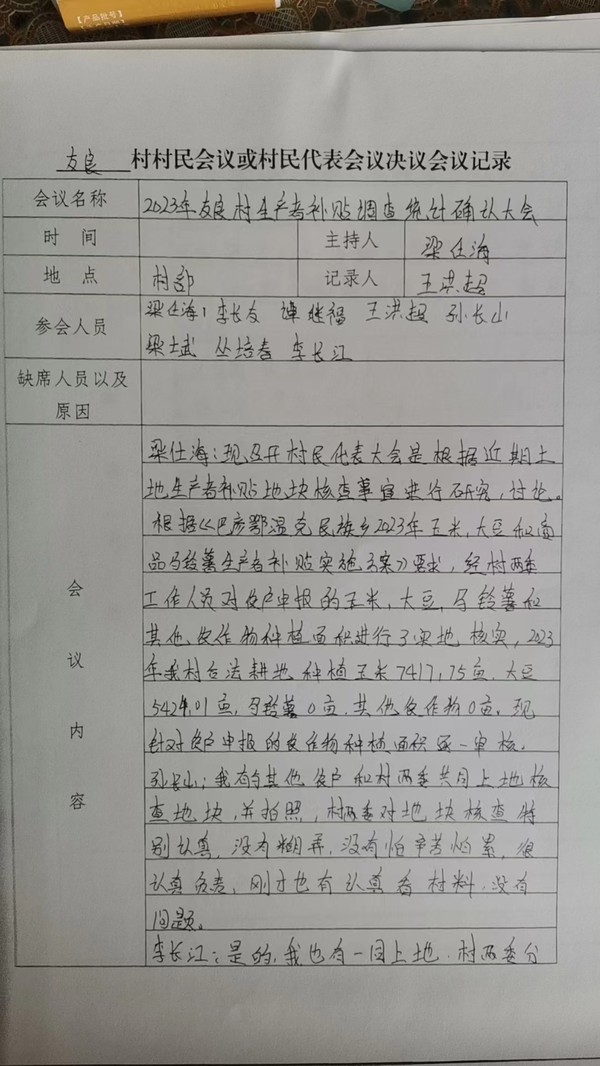 【产品批号】
友良 村村民会议或村民代表会议决议会议记录
会议名称 2023年友良村生产者补贴调查统计确认大会
时 间 主持人 梁仕海
地 点 村部 记录人 王洪超
参会人员 梁仕海 李长友 继福 王洪超 孙长山
梁士武 丛培春 李长江
缺席人员以及
原因
会议内容
梁仕海：现召开村民代表大会是根据近期土
地生产者补贴地块核查事宜进行研究，讨论。
根据《巴彦鄂温克民族乡2023年玉米，大豆和商
品马铃薯生产者补贴实施方案》要求，经村两委
工作人员对农户申报的玉米，大豆，马铃薯和
其他农作物种植面积进行了实地核实，2023
年我村合法耕地种植玉米7417.75亩，大豆
5424.01亩，马铃薯0亩，其他农作物0亩。现
针对农户申报的农作物种植面积逐一审核。
孙长山：我有与其他农户和村两委共同上地核
查地块，并拍照，村两委对地块核查特
别认真，没有糊弄，没有怕辛苦怕累，很
认真负责，刚才也有认真看材料，没有
问题。
李长江：是的，我也有一同上地，村两委分